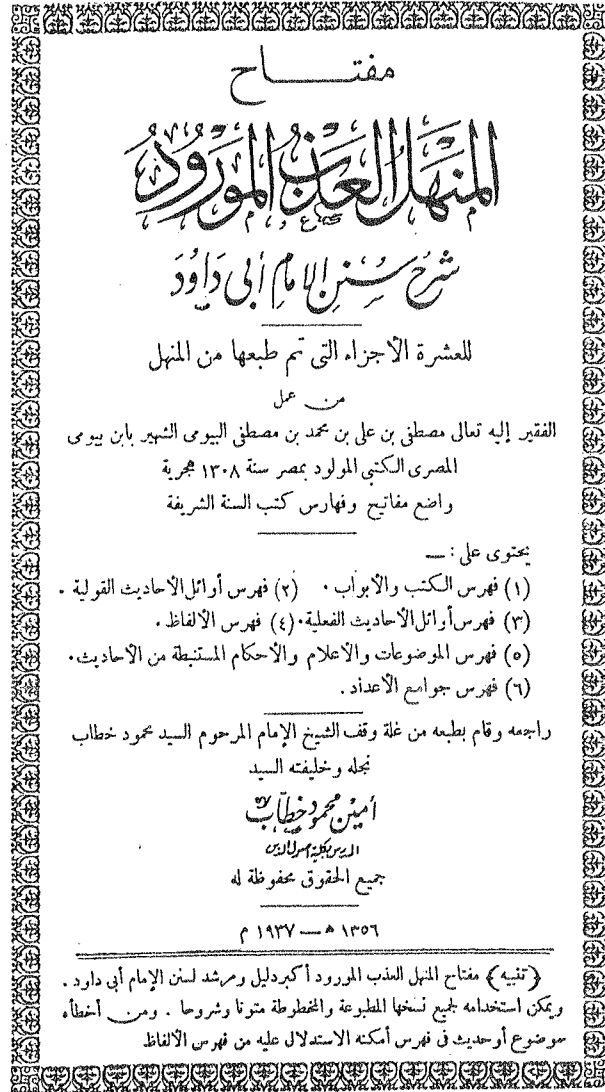 مفتاح
المنهل العذب المورود
شرح سنن الإمام أبي داود
للعشرة الأجزاء التي تم طبعها من المنهل
من عمل
الفقير إليه تعالى مصطفى بن على بن محمد بن مصطفى البيومى الشهير بابن بيومى
المصرى الكتبى المولود بمصر سنة ١٣٠٨ هجرية
واضع مفاتيح وفهارس كتب السنة الشريفة
يحتوى على : —
(١) فهرس الكتب والأبواب . (٢) فهرس أوائل الأحاديث القولية .
(٣) فهرس أوائل الأحاديث الفعلية . (٤) فهرس الألفاظ .
(٥) فهرس الموضوعات والأعلام والأحكام المستنبطة من الأحاديث .
(٦) فهرس جوامع الأعداد .
راجعه وقام بطبعه من غلة وقف الشيخ الإمام المرحوم السيد محمود خطاب
نجله وخليفته السيد
أمين محمود خطاب
المدرس بكلية أصول الدين
جميع الحقوق محفوظة له
١٣٥٦ ه — ١٩٣٧ م
﴿تنبيه﴾ مفتاح المنهل العذب المورود أكبر دليل ومرشد لسنن الإمام أبى داود .
ويمكن استخدامه لجميع نسخها المطبوعة والمخطوطة متونا وشروحا . ومن أخطأه
موضوع أو حديث فى فهرس أمكنه الاستدلال عليه من فهرس الألفاظ